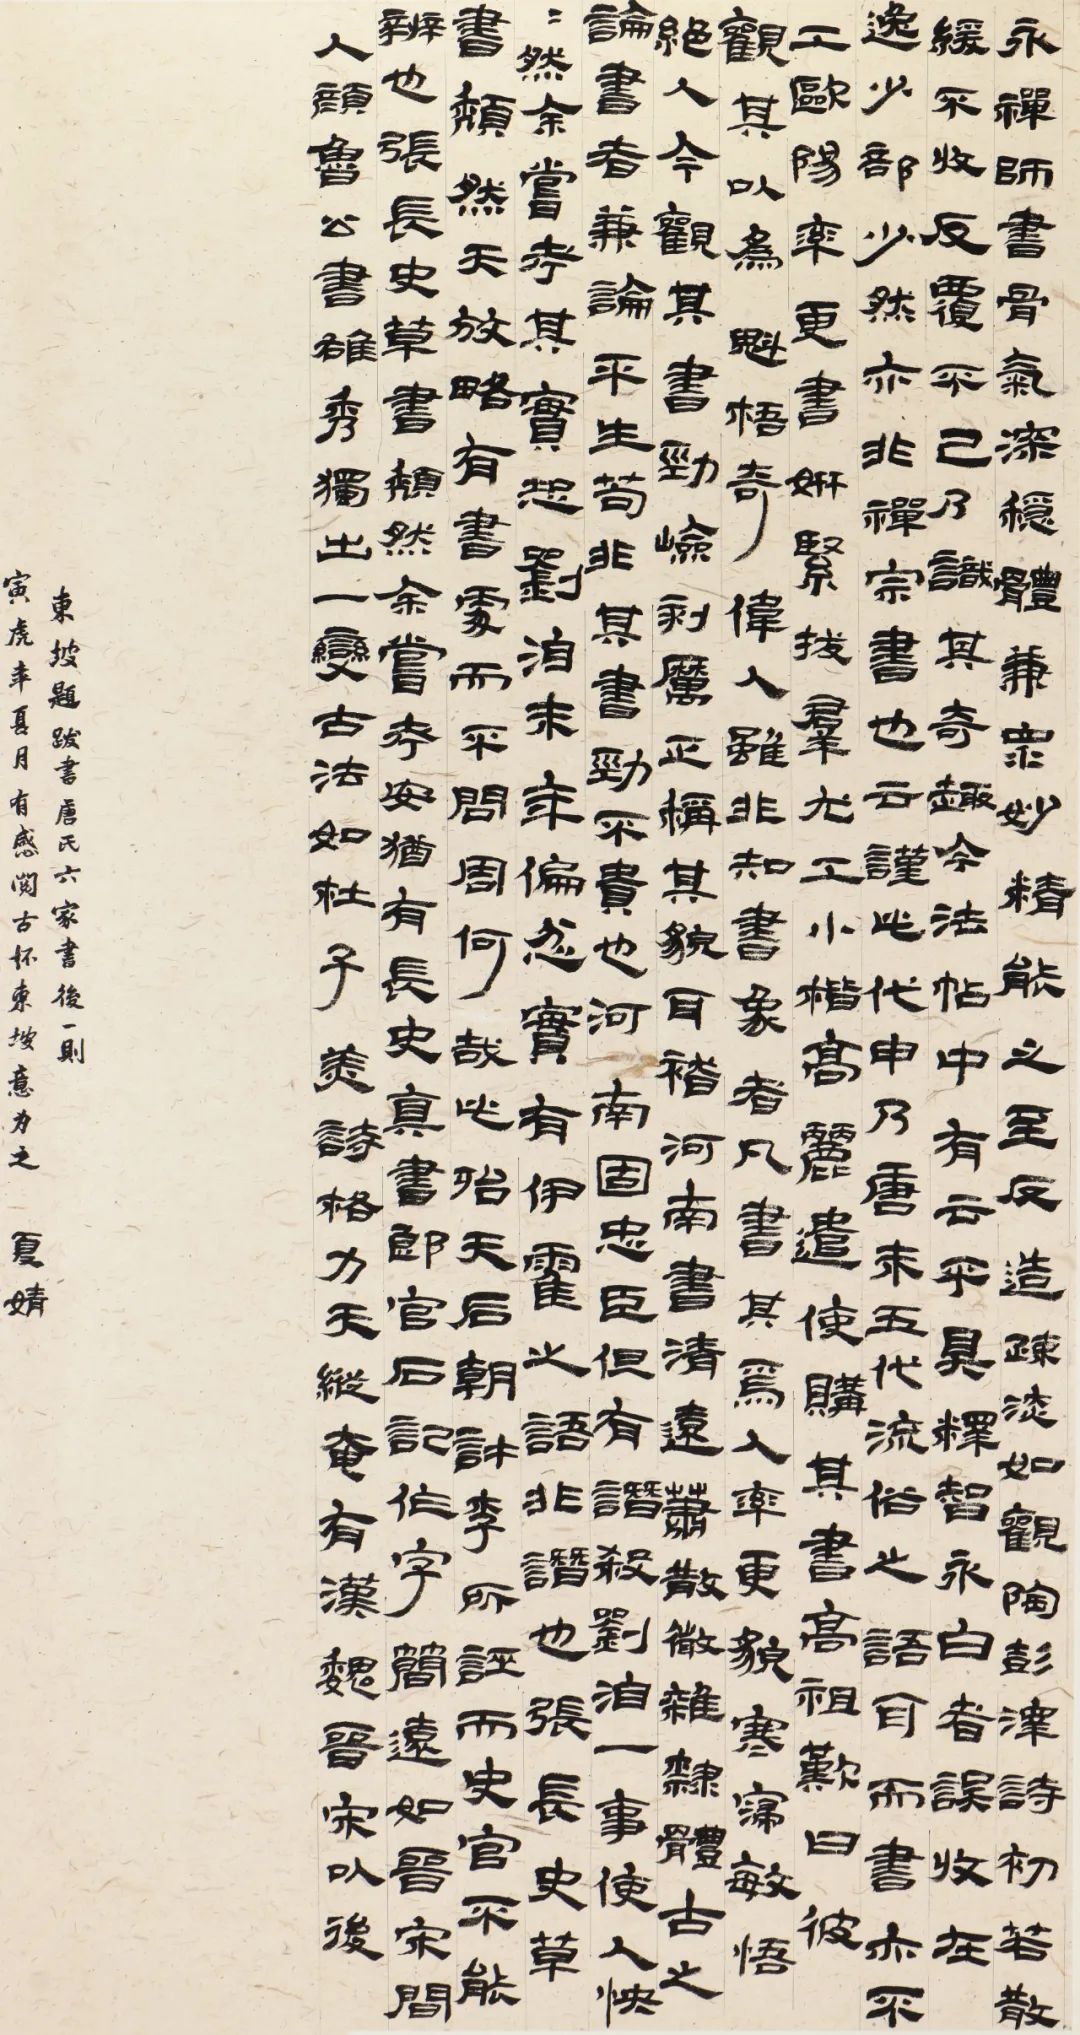 永禪師書骨氣深穩體兼衆妙精能之至反造疎淡如觀陶彭澤詩初若散
緩不收反覆不已乃識其奇趣今法帖中有云不具釋智永白者誤收在
逸少部少然亦非禪宗書也云謹此代申乃唐末五代流俗之語耳而書亦不
工歐陽率更書妍緊拔羣尤工小楷高麗遣使購其書高祖歎曰彼
觀其以為魁梧奇偉人雖非知書象者凡書其爲人率更貌寒寢敏悟
絕人今觀其書勁嶮刻厲正稱其貌耳褚河南書清遠蕭散微雜隸體古之
論書者兼論平生苟非其書勁不貴也河南固忠臣但有譖殺劉洎一事使人怏
〻然余嘗考其實恐劉洎末年偏忿實有伊霍之語非譖也張長史草
書頹然天放略有書處而不問周何哉此殆天后朝許李所誣而史官不能
辨也張長史草書頹然余嘗考安猶有長史真書郎官石記作字簡遠如晉宋間
人顏魯公書雄秀獨出一變古法如杜子美詩格力天縱奄有漢魏晉宋以後
東坡題跋書唐氏六家書後一則
寅虎年夏月有感閱古怀東坡意为之 夏婧